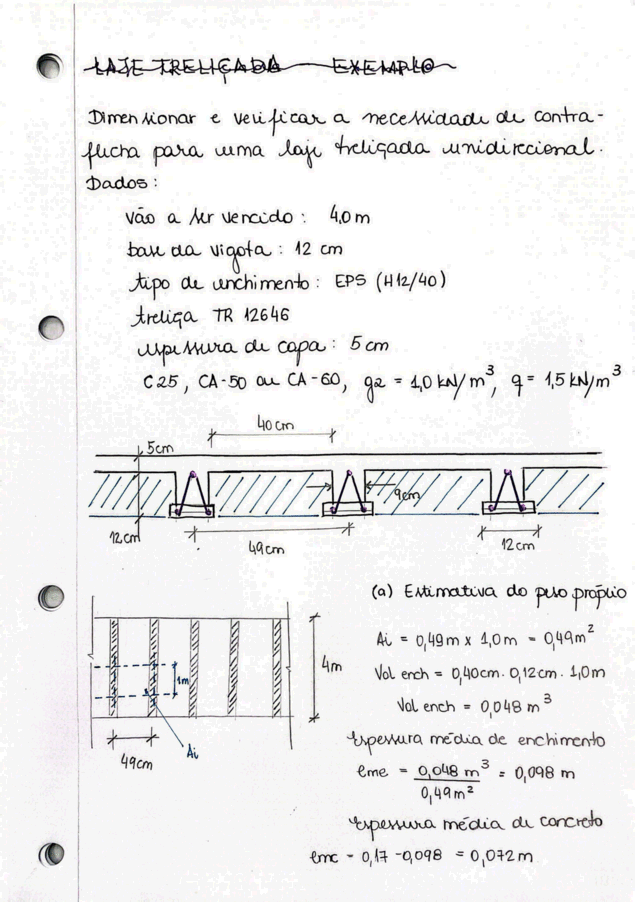 LAJE TRELIÇADA - EXEMPLO
Dimensionar e verificar a necessidade de contra-
flecha para uma laje treliçada unidirecional.
Dados:
vão a ser vencido: 4,0 m
base da vigota: 12 cm
tipo de enchimento: EPS (H12/40)
treliça TR 12646
espessura de capa: 5 cm
C25, CA-50 ou CA-60, g2 = 1,0 kN/m³, q = 1,5 kN/m³
40 cm
5cm
9cm
12cm
49cm
12cm
(a) Estimativa do peso próprio
Ai = 0,49m x 1,0m = 0,49m²
4m
1m
Vol ench = 0,40cm . 0,12cm . 1,0m
Vol ench = 0,048 m³
Ai
49cm
Espessura média de enchimento
eme = 0,048 m³ / 0,49m² = 0,098 m
Espessura média de concreto
emc = 0,17 - 0,098 = 0,072m